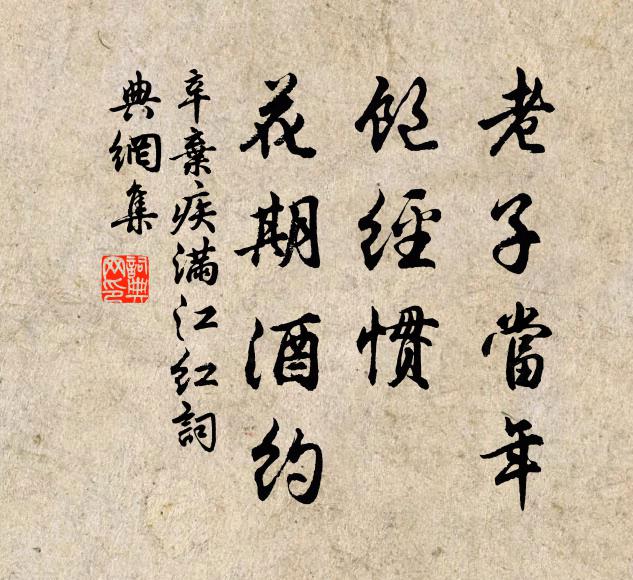 老子當年
飽經慣
花期酒約
辛棄疾滿江红詞
典網集
詞典网印